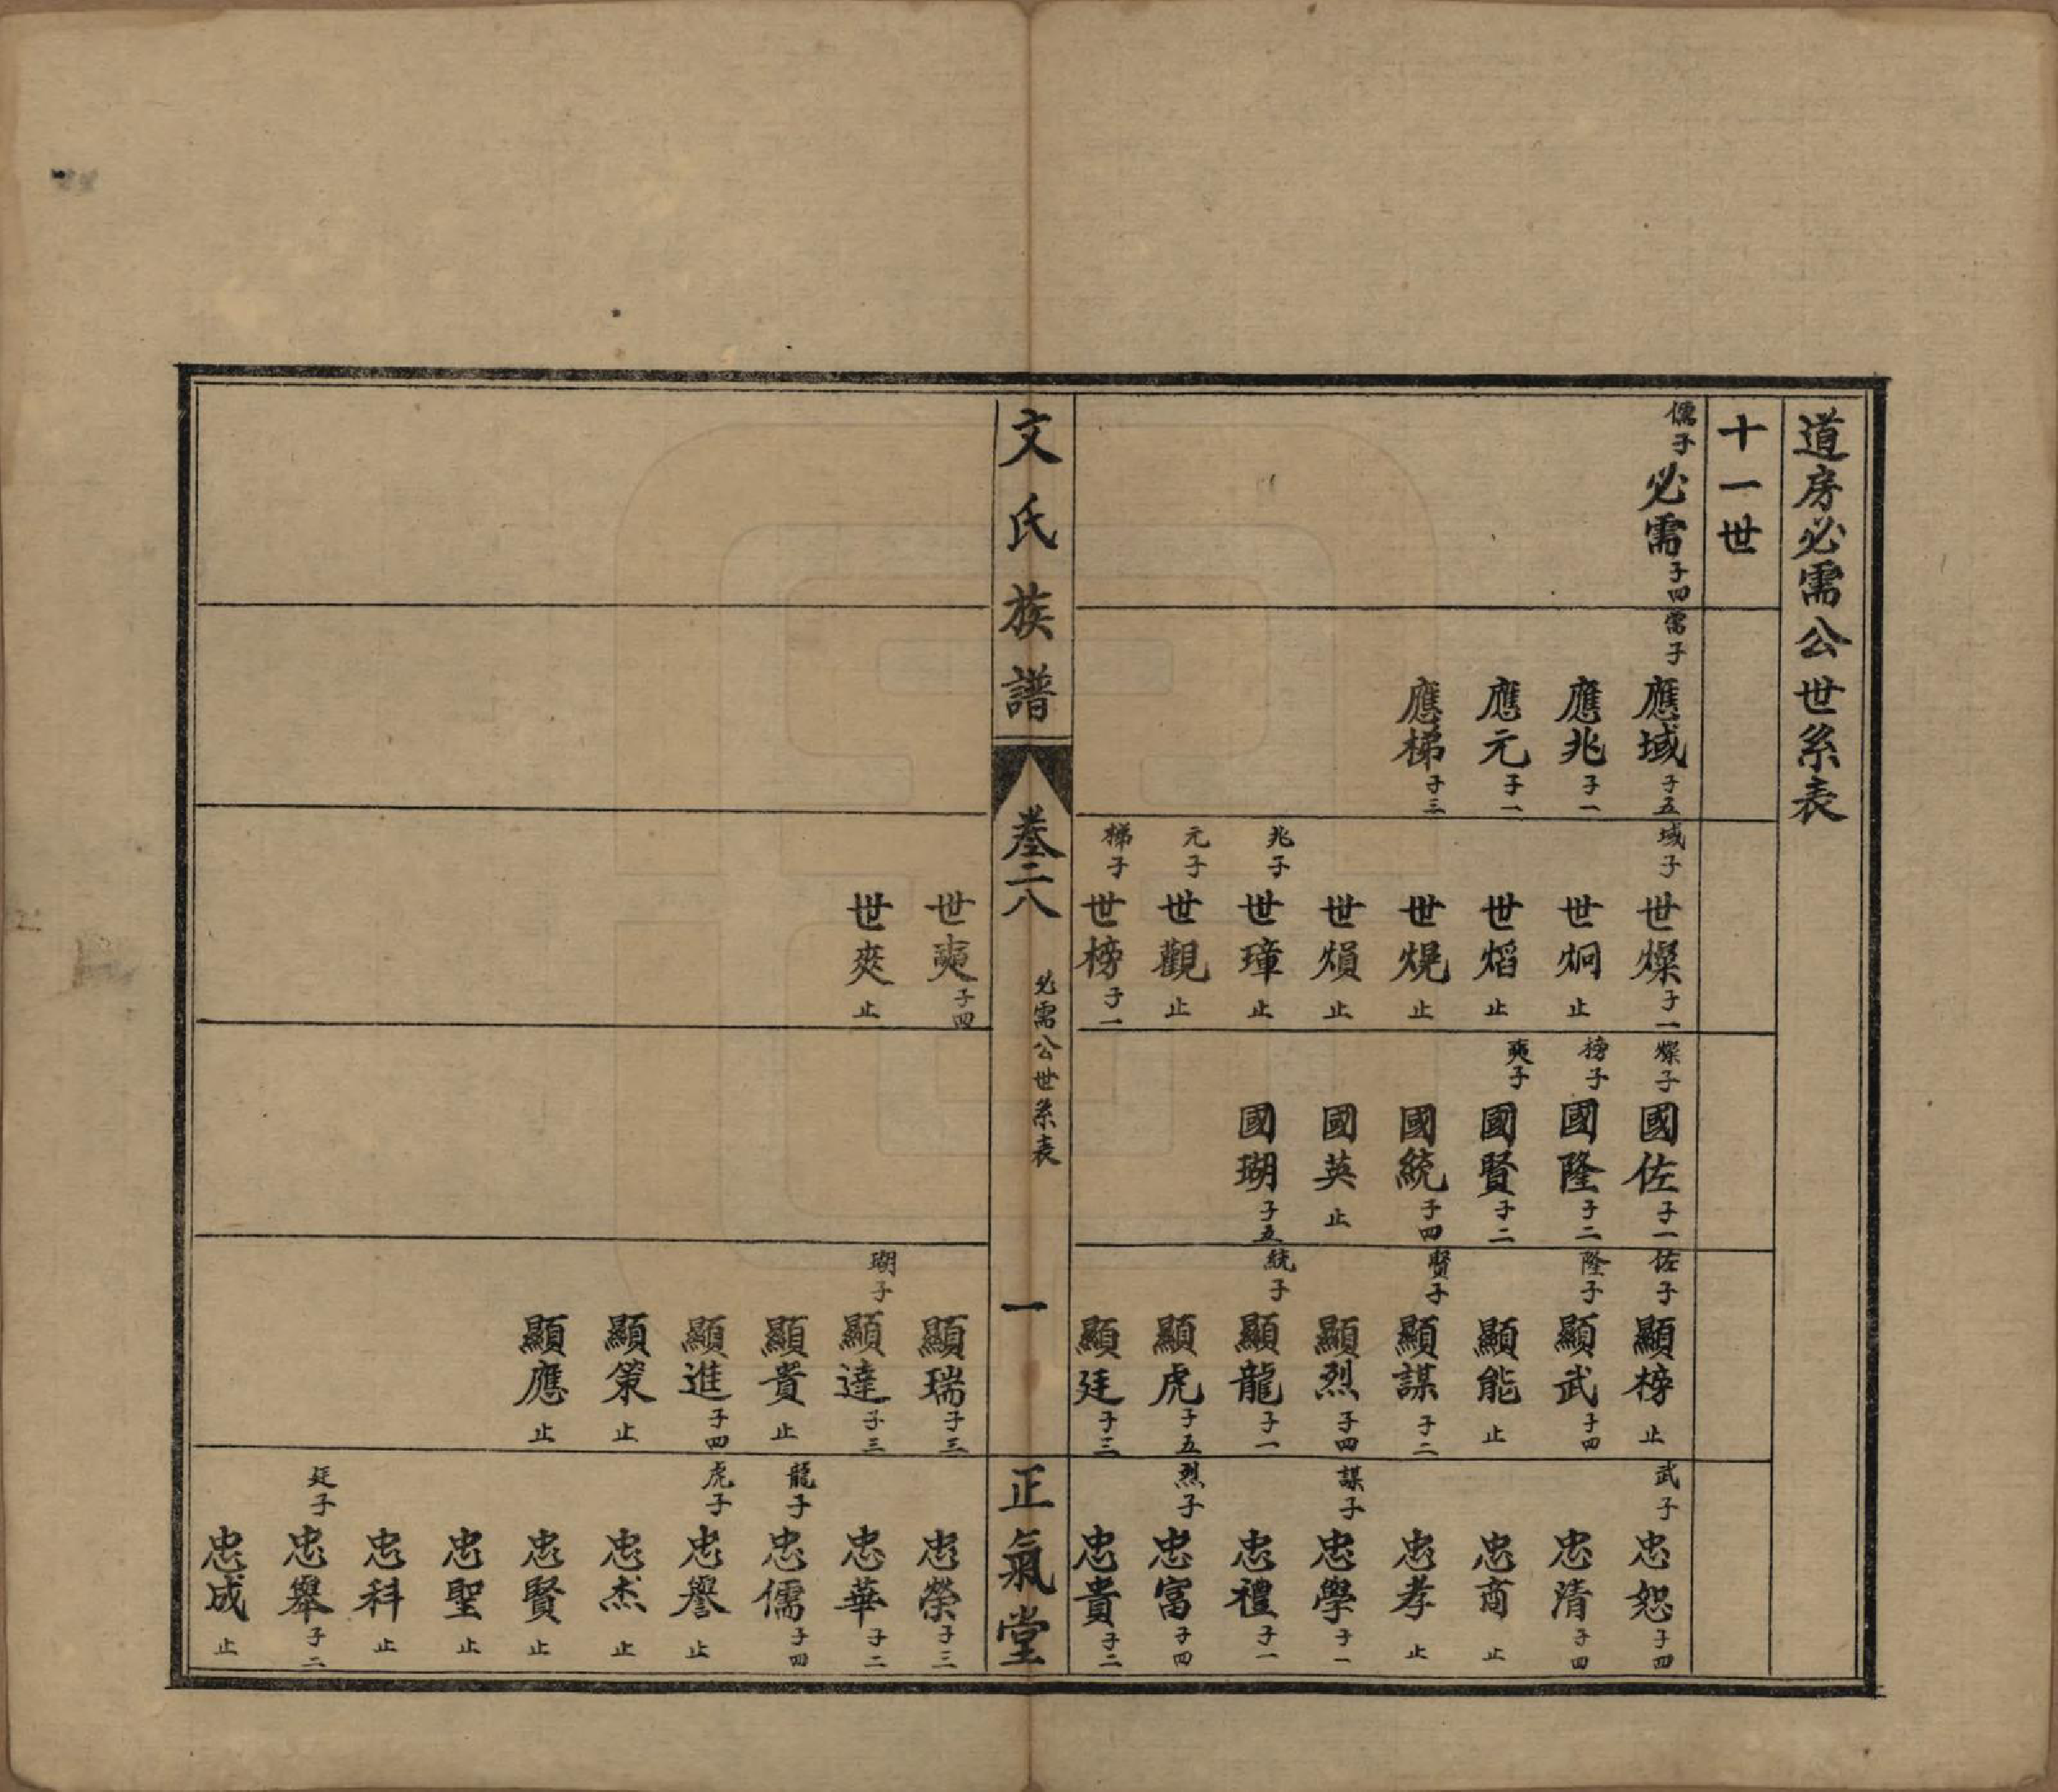 道房必需公世系表
十一世
儒子 必需 子四
需子 應域 子五
應兆 子一
應元 子一
應梯 子三
域子 世燦 子一
世炯 止
世熖 止
世熀 止
世熉 止
兆子 世璋 止
元子 世觀 止
梯子 世榜 子一
燦子 國佐 子一
榜子 國隆 子二
奭子 國賢 子二
國統 子四
國英 止
國瑚 子五
佐子 顯榜 止
隆子 顯武 子四
顯能 止
賢子 顯謀 子二
顯烈 子四
統子 顯龍 子一
顯虎 子五
顯廷 子三
武子 忠恕 子四
忠清 子四
忠商 止
忠孝 止
謀子 忠學 子一
忠禮 子一
烈子 忠富 子四
忠貴 子二
文氏族譜
卷二八
必需公世系表
一
正氣堂
世奭 子四
世爽 止
顯瑞 子三
瑚子 顯達 子三
顯貴 止
顯進 子四
顯策 止
顯應 止
忠榮 子三
忠華 子二
龍子 忠儒 子四
虎子 忠譽 止
忠杰 止
忠賢 止
忠聖 止
忠科 止
廷子 忠舉 子二
忠成 止